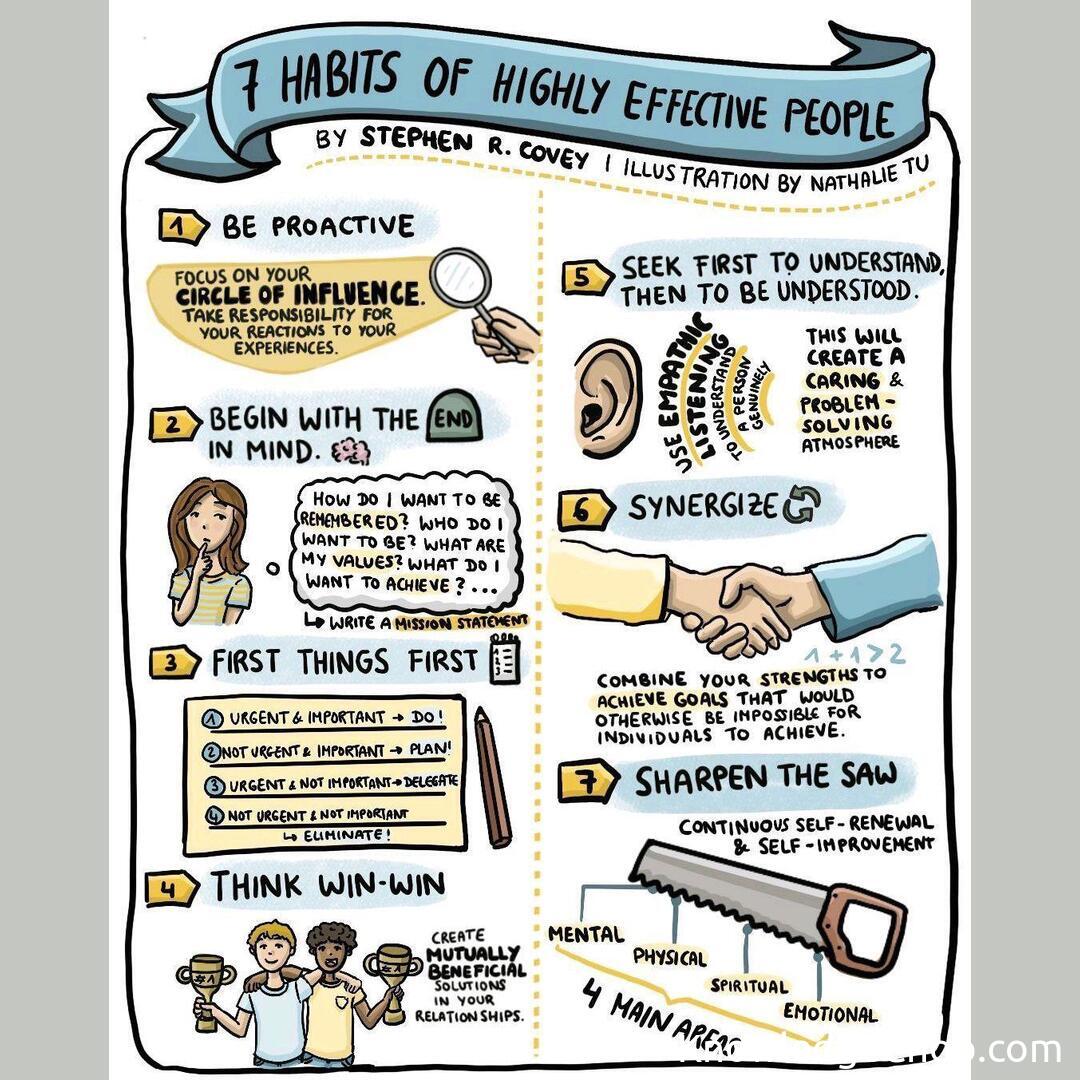 7 HABITS OF HIGHLY EFFECTIVE PEOPLE
BY STEPHEN R. COVEY | ILLUSTRATION BY NATHALIE TU
1 BE PROACTIVE
FOCUS ON YOUR
CIRCLE OF INFLUENCE.
TAKE RESPONSIBILITY FOR
YOUR REACTIONS TO YOUR
EXPERIENCES.
2 BEGIN WITH THE END
IN MIND.
HOW DO I WANT TO BE
REMEMBERED? WHO DO I
WANT TO BE? WHAT ARE
MY VALUES? WHAT DO I
WANT TO ACHIEVE?...
↳ WRITE A MISSION STATEMENT
3 FIRST THINGS FIRST
1
2
3
1 URGENT & IMPORTANT → DO!
2 NOT URGENT & IMPORTANT → PLAN!
3 URGENT & NOT IMPORTANT → DELEGATE
4 NOT URGENT & NOT IMPORTANT
↳ ELIMINATE!
4 THINK WIN-WIN
#1
#1
CREATE
MUTUALLY
BENEFICIAL
SOLUTIONS
IN YOUR
RELATIONSHIPS.
5 SEEK FIRST TO UNDERSTAND,
THEN TO BE UNDERSTOOD.
USE EMPATHIC
LISTENING
TO UNDERSTAND
A PERSON
GENUINELY
THIS WILL
CREATE A
CARING &
PROBLEM-
SOLVING
ATMOSPHERE
6 SYNERGIZE
1+1>2
COMBINE YOUR STRENGTHS TO
ACHIEVE GOALS THAT WOULD
OTHERWISE BE IMPOSSIBLE FOR
INDIVIDUALS TO ACHIEVE.
7 SHARPEN THE SAW
CONTINUOUS SELF-RENEWAL
& SELF-IMPROVEMENT
MENTAL
PHYSICAL
SPIRITUAL
EMOTIONAL
4 MAIN AREAS